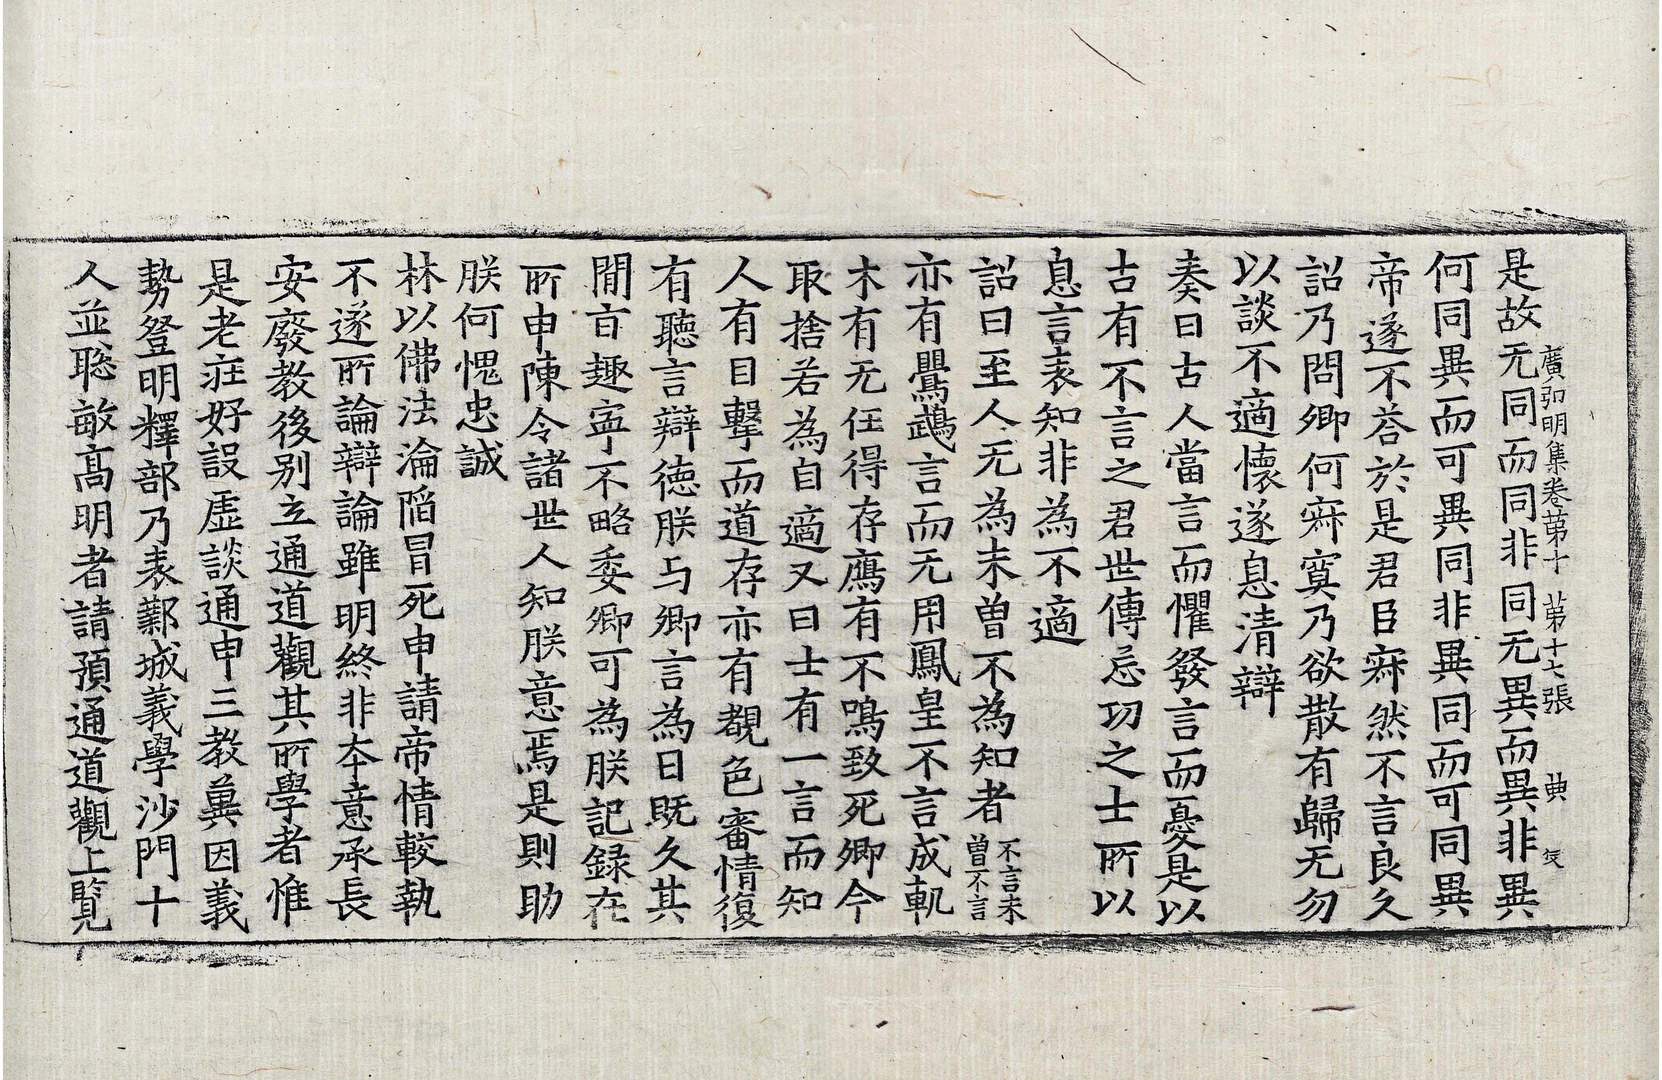 是故无同而同非同无異而異非異
廣弘明集卷第十 第十七張 典
何同異而可異同非異同而可同異
帝遂不荅於是君臣寂然不言良久
詔乃問卿何寂寞乃欲散有歸无勿
以談不適懷遂息清辯
奏曰古人當言而懼發言而憂是以
古有不言之君世傳忘功之士所以
息言表知非為不適
詔曰至人无為未曽不為知者不言未曽不言
亦有鸎鵡言而无用鳳皇不言成軌
木有无任得存鴈有不鳴致死卿今
取捨若為自適又曰士有一言而知
人有目擊而道存亦有覩色審情復
有聽言辯德朕与卿言為日既久其
閒旨趣寜不略委卿可為朕記録在
所申陳令諸世人知朕意焉是則助
朕何愧忠誠
林以佛法淪陷冒死申請帝情較執
不遂所論辯論雖明終非本意承長
安廢教後别立通道觀其所學者惟
是老莊好設虛談通申三教冀因義
勢登明釋部乃表鄴城義學沙門十
人並聡敏髙明者請預通道觀上覧